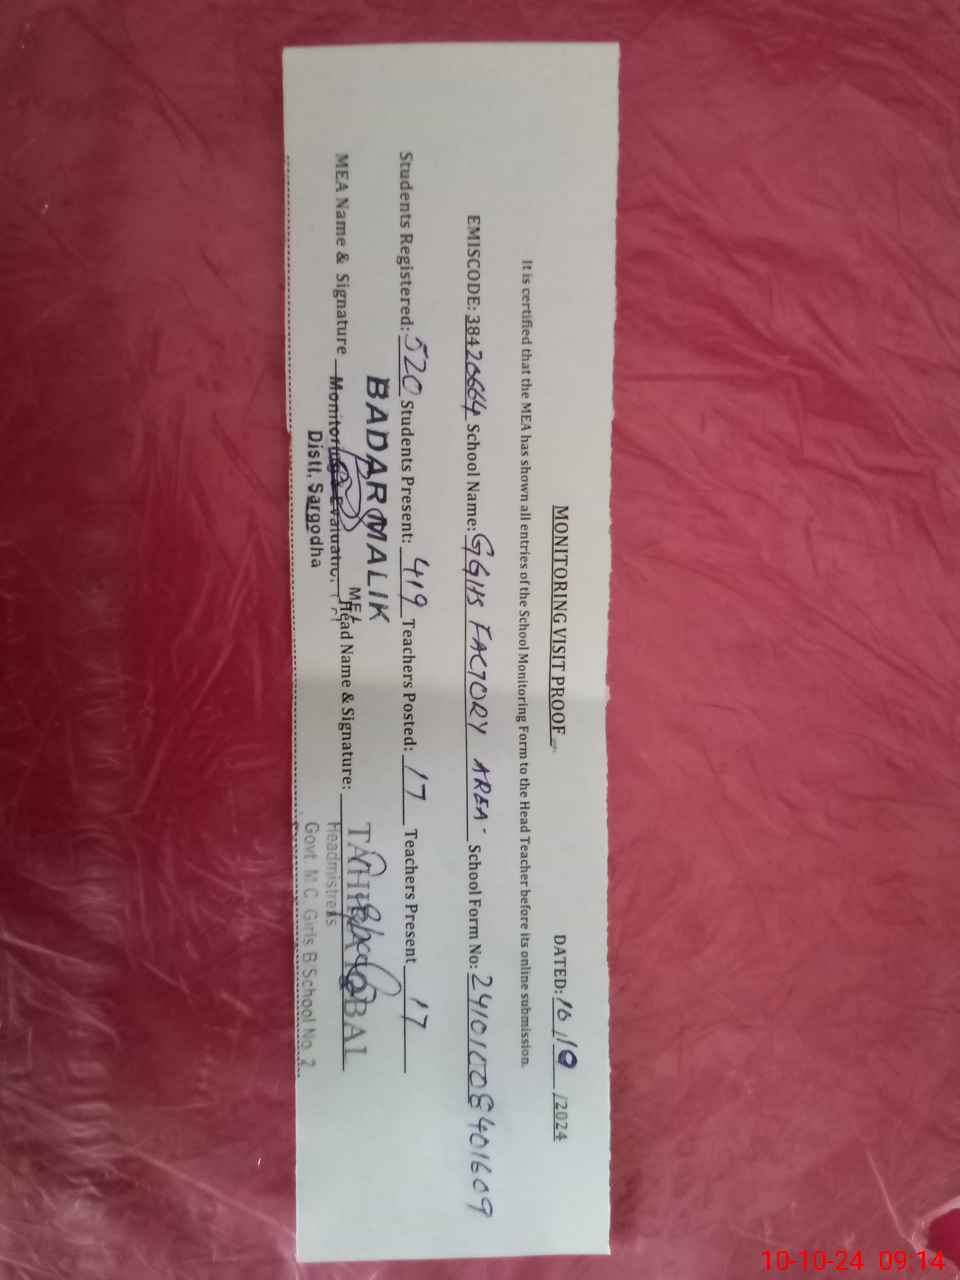 MONITORING VISIT PROOF
DATED: 10/10/2024
It is certified that the MEA has shown all entries of the School Monitoring Form to the Head Teacher before its online submission.
EMISCODE: 38420664 School Name: GGHS FACTORY AREA. School Form No:
Students Registered: 520 Students Present: 419 Teachers Posted: 17 Teachers Present 17
BADAR MALIK
MEA Name & Signature Head Name & Signature:
Monitoring & Evaluation
Distt. Sargodha
Headmistress
Govt. M.C. Girls School No. 2
10-10-24 09:14